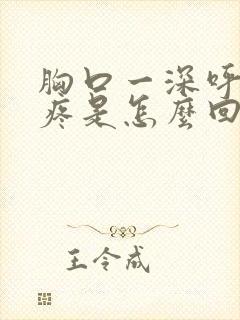 胸口一深呼
疼是怎麼回
王令成